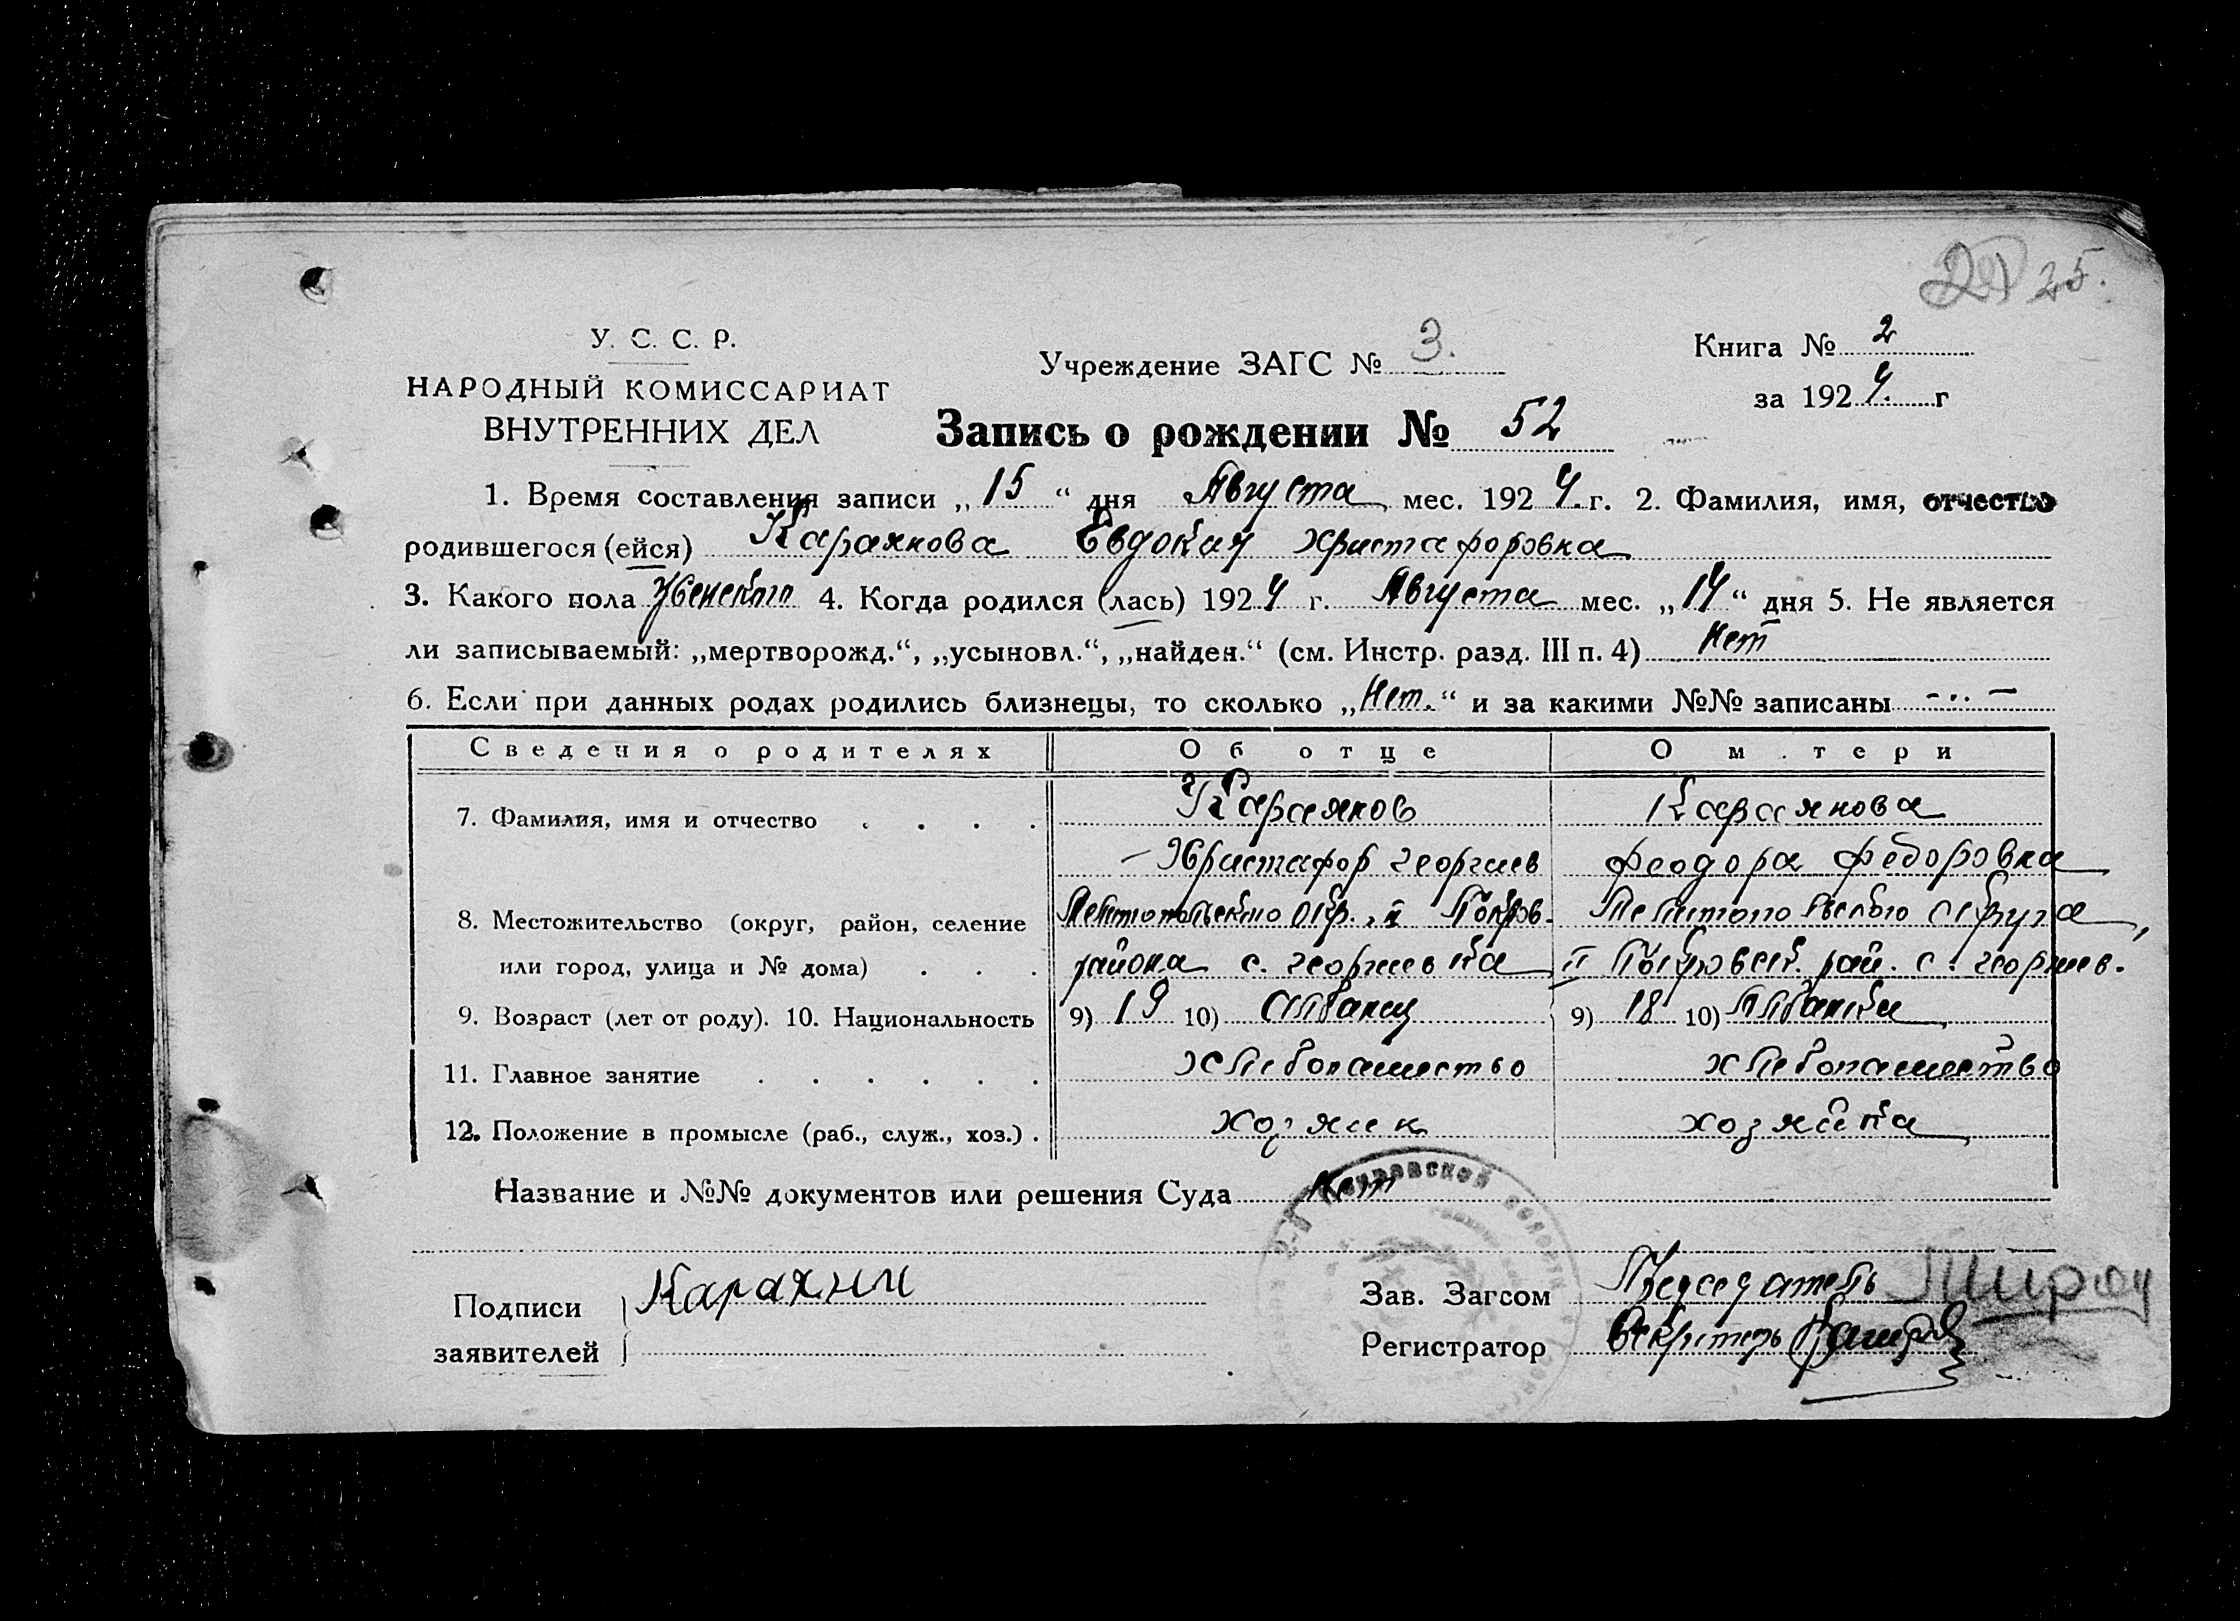 25.
У. С. С. Р.
НАРОДНЫЙ КОМИССАРИАТ
ВНУТРЕННИХ ДЕЛ
Учреждение ЗАГС № 3.
Книга № 2
за 1924. г
Запись о рождении № 52
1. Время составления записи „15“ дня Августа мес. 1924. г. 2. Фамилия, имя, отчество
родившегося (ейся) Караянова Евдокия Христафоровна
3. Какого пола Женского 4. Когда родился (лась) 1924 г. Августа мес. „14“ дня 5. Не является
ли записываемый: „мертворожд.“, „усыновл.“, „найден.“ (см. Инстр. разд. III п. 4) Нет
6. Если при данных родах родились близнецы, то сколько „Нет.“ и за какими №№ записаны
Сведения о родителях Об отце О м.тери
7. Фамилия, имя и отчество Караянов Караянова
Христафор Георгиев Феодора Федоровна
8. Местожительство (округ, район, селение Мелитопольского Окр. II Покров. Мелитопольского Округа,
или город, улица и № дома) района с. Георгиевка II Покровск. рай. с. Георгиев.
9. Возраст (лет от роду). 10. Национальность 9) 19 10) Албанец 9) 18 10) Албанка
11. Главное занятие Хлебопашество хлебопашество
12. Положение в промысле (раб., служ., хоз.) Хозяин хозяйка
Название и №№ документов или решения Суда Нет
Подписи заявителей
Зав. Загсом Председатель
Регистратор Секретарь